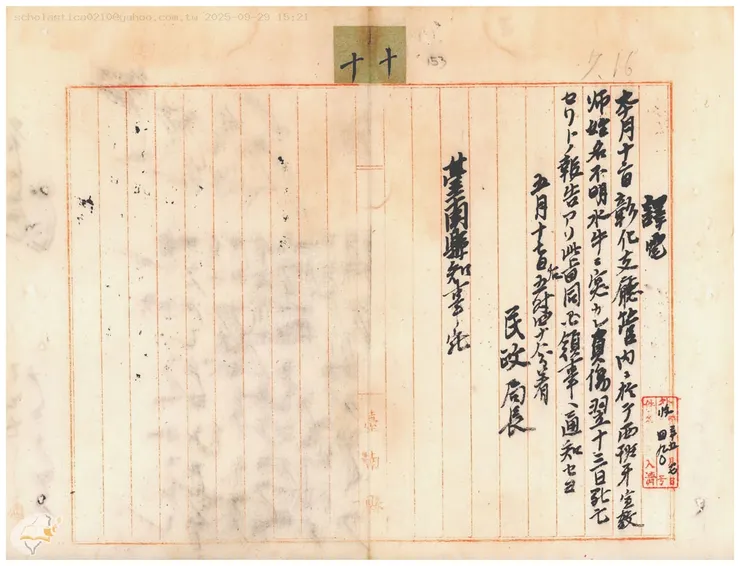 scholastica0210@yahoo.com.tw 2025-09-29 15:21
十 十
153
7.16
譯電
本月十二日彰化支廳管内ニ於テ西班牙宣教
師姓名不明水牛ニ突カレ負傷翌十三日死亡
セリトノ報告アリ此旨同国領事ヘ通知セヨ
五月十七日后五時四十分着
民政局長
臺南縣知事宛
臺南縣